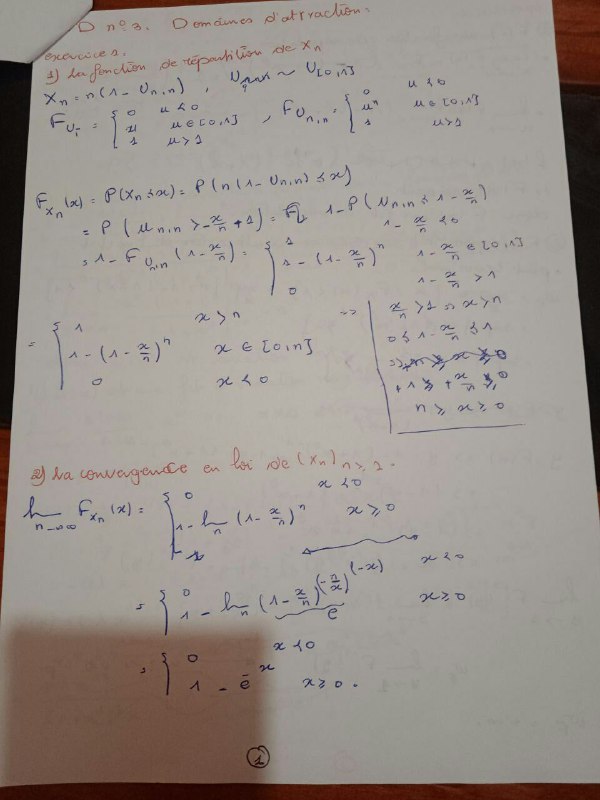 D n°3. Domaines d'attraction.
exercice 1.
1) la fonction de répartition de Xn
Xn = n(1 - Un,n) , ~ U[0,1]
F_Ui = { 0 u < 0 , F_Un,n = { 0 u < 0
u u ∈ [0,1] u^n u ∈ [0,1]
1 u > 1 1 u > 1
F_Xn(x) = P(Xn ≤ x) = P(n(1 - Un,n) ≤ x)
= P(Un,n ≥ -x/n + 1) = 1 - P(Un,n ≤ 1 - x/n)
= 1 - F_Un,n(1 - x/n) = { 1 1 - x/n < 0
1 - (1 - x/n)^n 1 - x/n ∈ [0,1]
0 1 - x/n > 1
= { 1 x > n
1 - (1 - x/n)^n x ∈ [0,n]
0 x < 0
=> x/n > 1 => x > n
0 ≤ 1 - x/n ≤ 1
+1 ≥ + x/n ≥ 0
n ≥ x ≥ 0
2) la convergence en loi de (Xn)n≥1.
lim n→∞ F_Xn(x) = { 0 x < 0
1 - lim n (1 - x/n)^n x ≥ 0
= { 0 x < 0
1 - lim n (1 - x/n)^(-n/x)(-x) x ≥ 0
e
= { 0 x < 0
1 - e^-x x ≥ 0 .
1